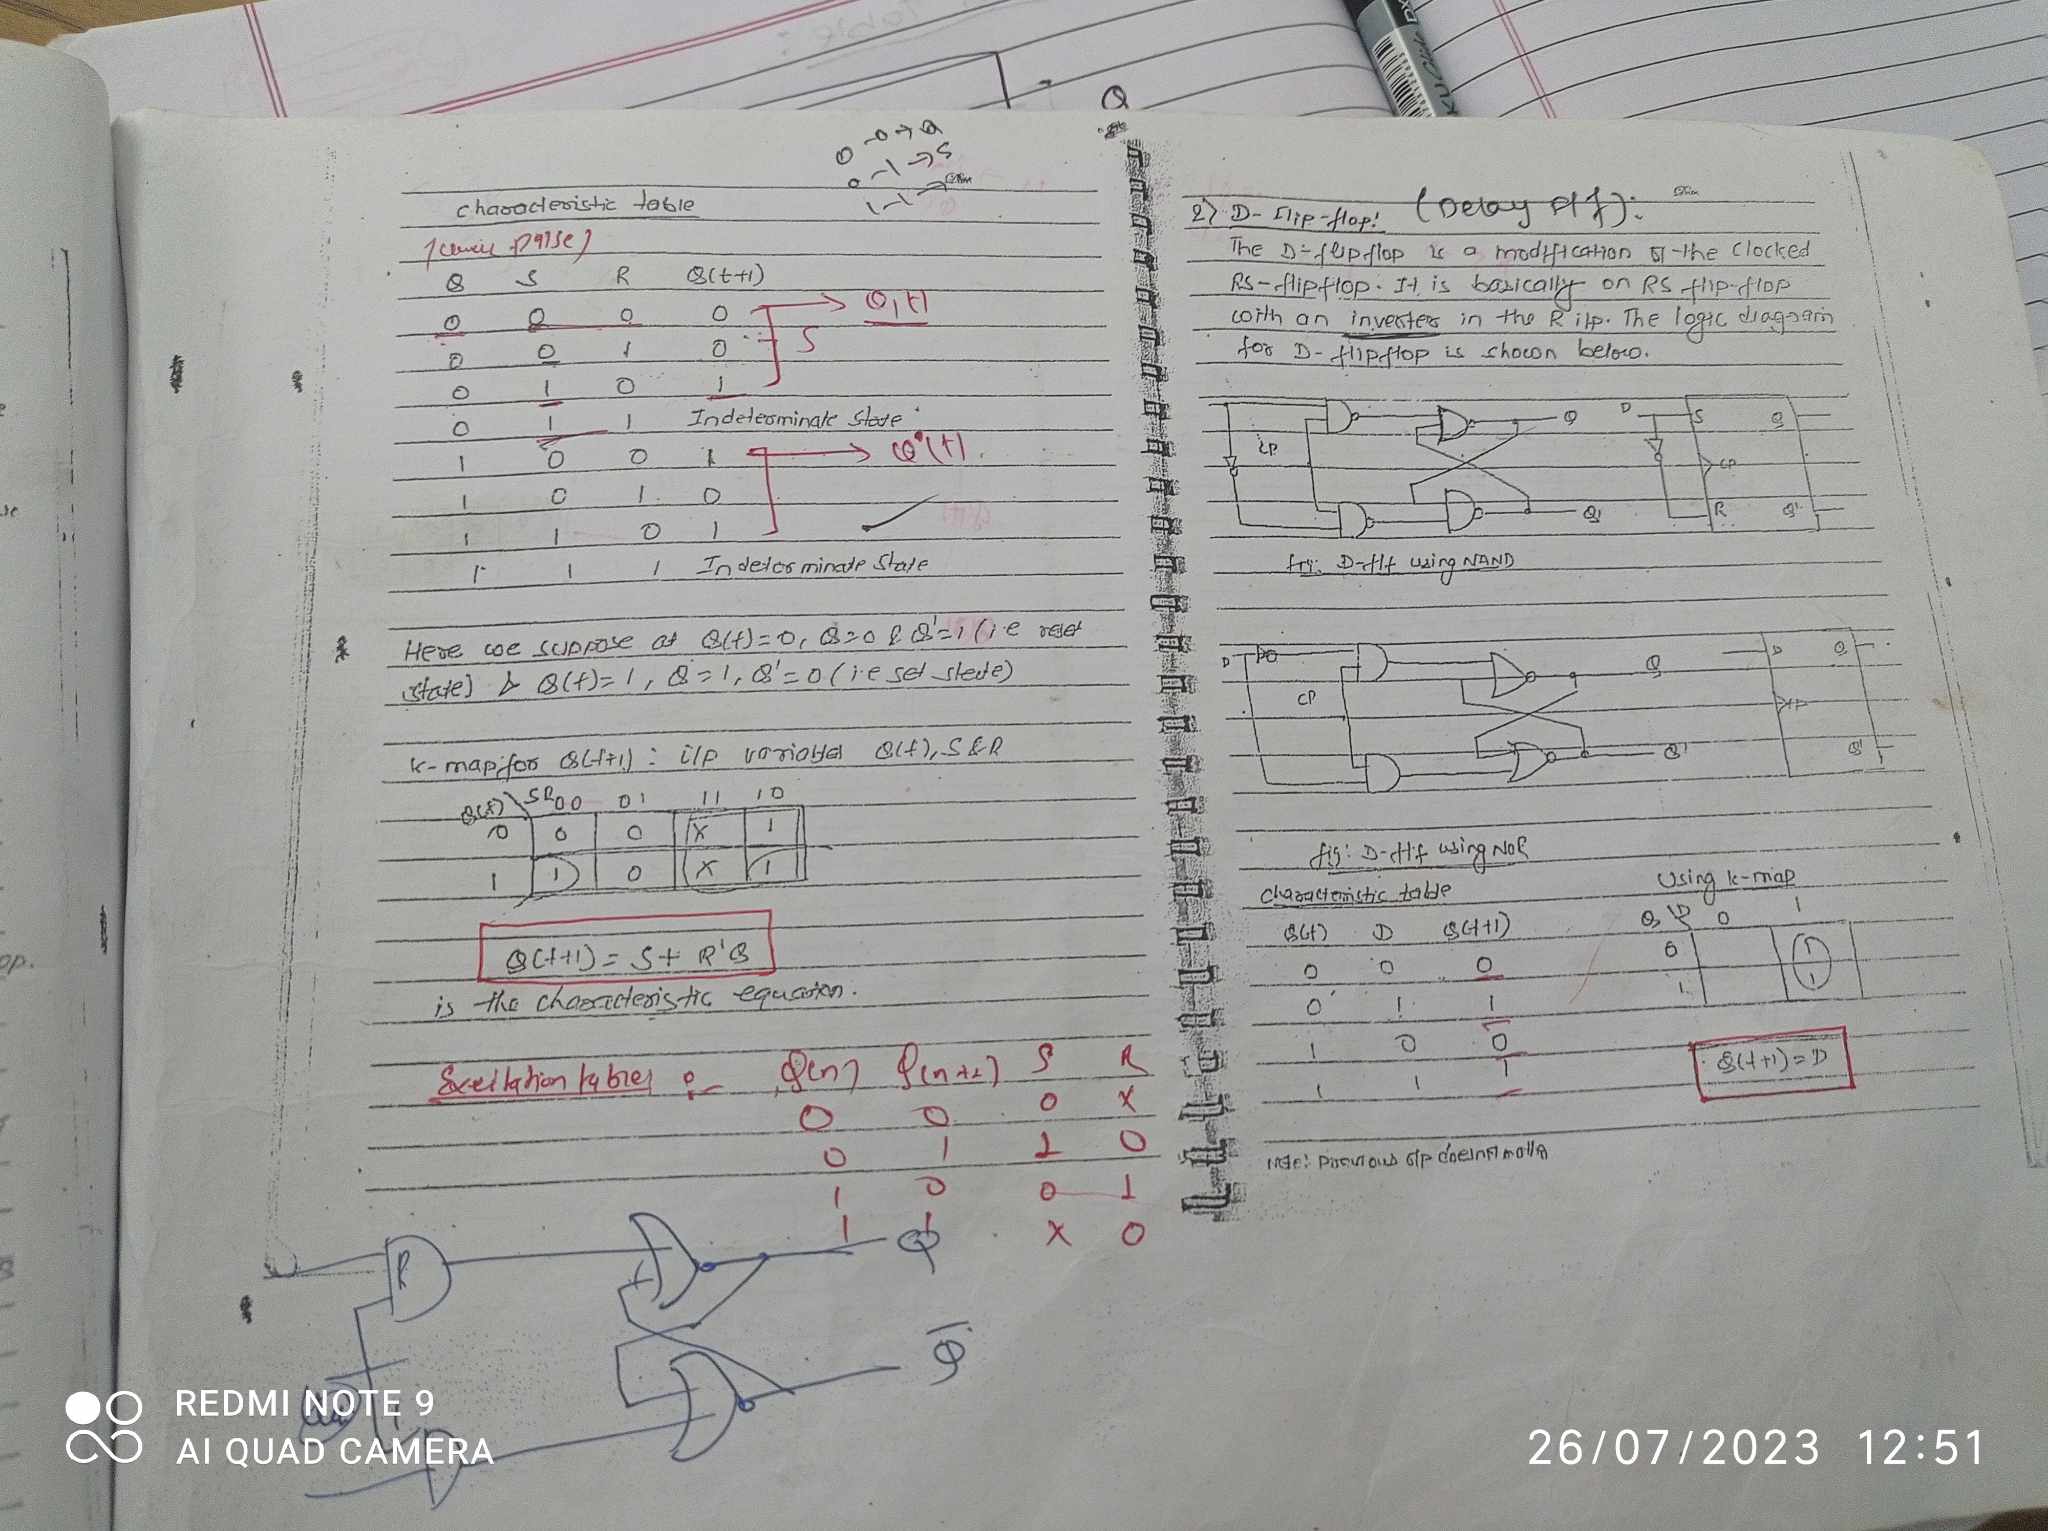 Q
0-0→Q
0-1→S
1-1→
characteristic table
Q S R Q(t+1)
0 0 0 0 → Q(t)
0 0 1 0 S
0 1 0 1
0 1 1 Indeterminate State
1 0 0 1 → Q(t)
1 0 1 0
1 1 0 1
1 1 1 Indeterminate State
Here we suppose at Q(t)=0, Q=0 & Q'=1 (i.e reset
state) & Q(t)=1, Q=1, Q'=0 (i.e set state)
K-map for Q(t+1): i/p variables Q(t), S & R
Q(t) SR 00 01 11 10
0 0 0 X 1
1 1 0 X 1
Q(t+1) = S + R'Q
is the characteristic equation.
Excitation tables :- Q(n) Q(n+1) S R
0 0 0 X
0 1 1 0
1 0 0 1
1 1 X 0
R Q
Q̅
2) D-flip-flop! (Delay f/f):
The D-flipflop is a modification of the clocked
RS-flipflop. It is basically an RS flip-flop
with an inverter in the R i/p. The logic diagram
for D-flipflop is shown below.
CP Q D S Q
CP
Q' R Q'
fig: D-f/f using NAND
D Q D Q
CP CP
Q' Q'
fig: D-f/f using NOR
characteristic table Using k-map
Q(t) D Q(t+1) Q D 0 1
0 0 0 0 1
0 1 1 1 1
1 0 0
1 1 1
Q(t+1) = D
Note: previous o/p doesn't matter
REDMI NOTE 9
AI QUAD CAMERA
26/07/2023 12:51